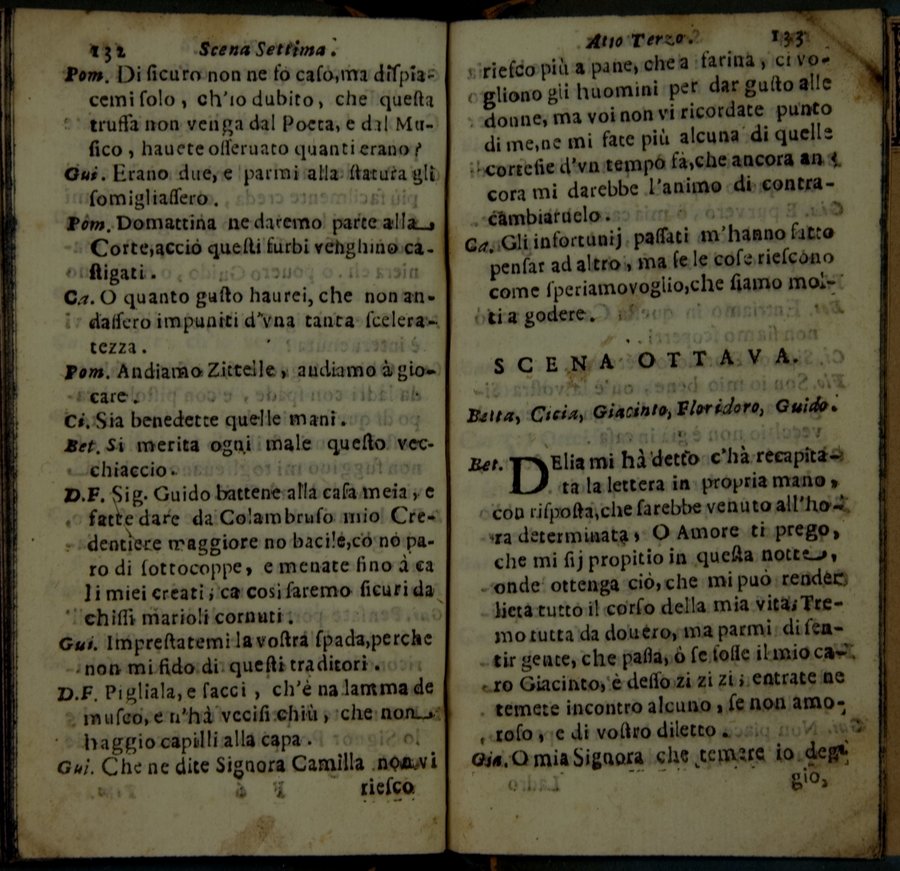 132 Scena Settima.
Pom. Di sicuro non ne fo caso, ma dispia-
cemi solo, ch'io dubito, che questa
truffa non venga dal Poeta, e dal Mu-
sico, hauete osseruato quanti erano?
Gui. Erano due, e parmi alla statura gli
somigliassero.
Pom. Domattina ne daremo parte alla
Corte, acciò questi furbi venghino ca-
stigati.
Ca. O quanto gusto haurei, che non an-
dassero impuniti d'vna tanta scelera-
tezza.
Pom. Andiamo Zittelle, audiamo à gio-
care.
Ci. Sia benedette quelle mani.
Bet. Si merita ogni male questo vec-
chiaccio.
D.F. Sig. Guido battene alla casa meia, e
fatte dare da Colambruso mio Cre-
dentiere maggiore no bacile, co nò pa-
ro di sottocoppe, e menate fino à ca
li miei creati, ca così saremo sicuri da
chissi marioli cornuti.
Gui. Imprestatemi la vostra spada, perche
non mi fido di questi traditori.
D.F. Pigliala, e sacci, ch'è na lamma de
museo, e n'hà vccisi chiù, che non
haggio capilli alla capa.
Gui. Che ne dite Signora Camilla non vi
riesco
Atto Terzo. 133
riesco più a pane, che a farina, ci vo-
gliono gli huomini per dar gusto alle
donne, ma voi non vi ricordate punto
di me, ne mi fate più alcuna di quelle
cortesie d'vn tempo fà, che ancora an
cora mi darebbe l'animo di contra-
cambiaruelo.
Ca. Gli infortunij passati m'hanno fatto
pensar ad altro, ma se le cose riescono
come speriamo voglio, che siamo mol-
ti a godere.
SCENA OTTAVA.
Betta, Cicia, Giacinto, Floridoro, Guido.
Bet. DElia mi hà detto c'hà recapita-
ta la lettera in propria mano,
con risposta, che sarebbe venuto all'ho-
ra determinata, O Amore ti prego,
che mi sij propitio in questa notte,
onde ottenga ciò, che mi può render
lieta tutto il corso della mia vita; Tre-
mo tutta da douero, ma parmi di sen-
tir gente, che passa, ò se fosse il mio ca-
ro Giacinto, è desso zi zi zi; entrate ne
temete incontro alcuno, se non amo-
roso, e di vostro diletto.
Gia. O mia Signora che temere io deg-
gio,